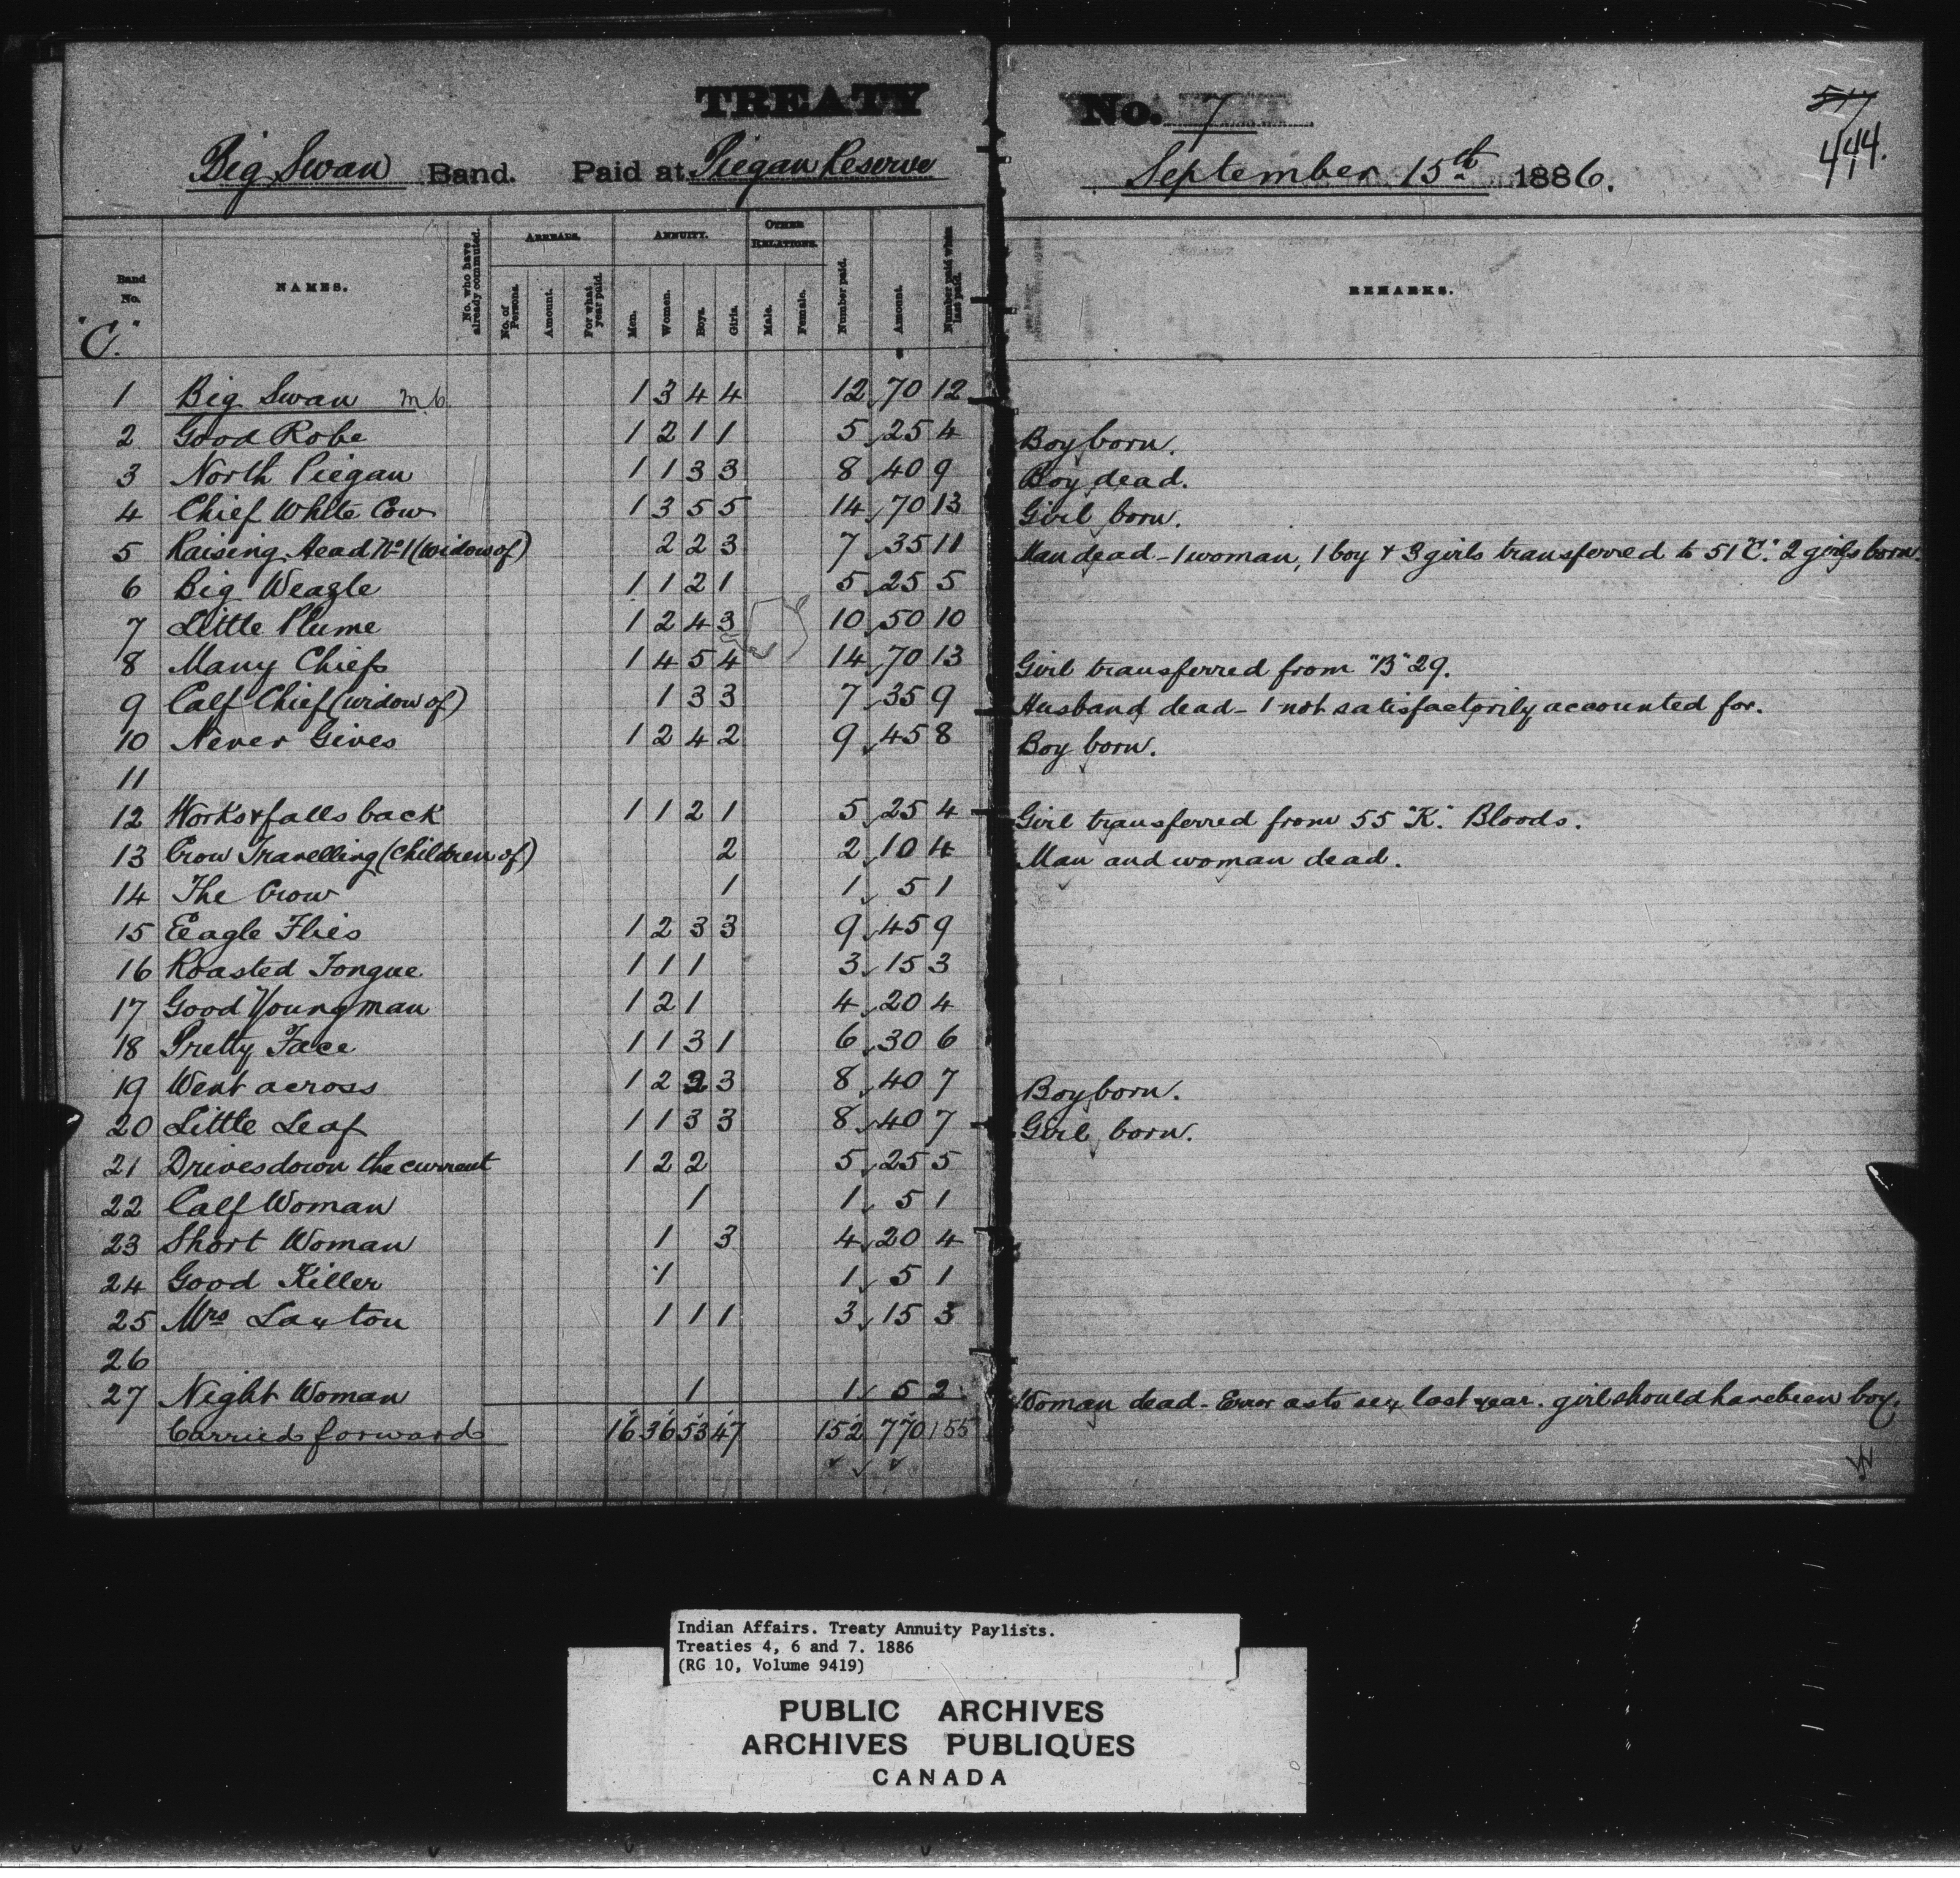 TREATY No. 7
517
444.
Big Swan Band. Paid at Piegan Reserve September 15th 1886.
Band No. NAMES. No. who have already commuted. ARREARS. No. of Persons. Amount. For what year paid. ANNUITY. Men. Women. Boys. Girls. OTHER RELATIONS. Male. Female. Number paid. Amount. Number paid when last paid. REMARKS.
"C."
1 Big Swan m.b. 1 3 4 4 12 70 12
2 Good Robe 1 2 1 1 5 25 4 Boy born.
3 North Piegan 1 1 3 3 8 40 9 Boy dead.
4 Chief White Cow 1 3 5 5 14 70 13 Girl born.
5 Raising Head No 1 (widow of) 2 2 3 7 35 11 Man dead - 1 woman, 1 boy + 3 girls transferred to 51 "C." 2 girls born.
6 Big Weagle 1 1 2 1 5 25 5
7 Little Plume 1 2 4 3 10 50 10
8 Many Chiefs 1 4 5 4 14 70 13 Girl transferred from "B" 29.
9 Calf Chief (widow of) 1 3 3 7 35 9 Husband dead - 1 not satisfactorily accounted for.
10 Never Gives 1 2 4 2 9 45 8 Boy born.
11
12 Works & falls back 1 1 2 1 5 25 4 Girl transferred from 55 "K". Bloods.
13 Crow Travelling (children of) 2 2 10 4 Man and woman dead.
14 The Crow 1 1 5 1
15 Eeagle Flies 1 2 3 3 9 45 9
16 Roasted Tongue 1 1 1 3 15 3
17 Good Young man 1 2 1 4 20 4
18 Pretty Face 1 1 3 1 6 30 6
19 Went across 1 2 2 3 8 40 7 Boy born.
20 Little Leaf 1 1 3 3 8 40 7 Girl born.
21 Drives down the current 1 2 2 5 25 5
22 Calf Woman 1 1 5 1
23 Short Woman 1 3 4 20 4
24 Good Killer 1 1 5 1
25 Mrs Laxton 1 1 1 3 15 3
26
27 Night Woman 1 1 5 2 Woman dead - Error as to sex last year. girl should have been boy.
Carried forward 16 36 53 47 152 770 155
Indian Affairs. Treaty Annuity Paylists.
Treaties 4, 6 and 7. 1886
(RG 10, Volume 9419)
PUBLIC ARCHIVES
ARCHIVES PUBLIQUES
CANADA